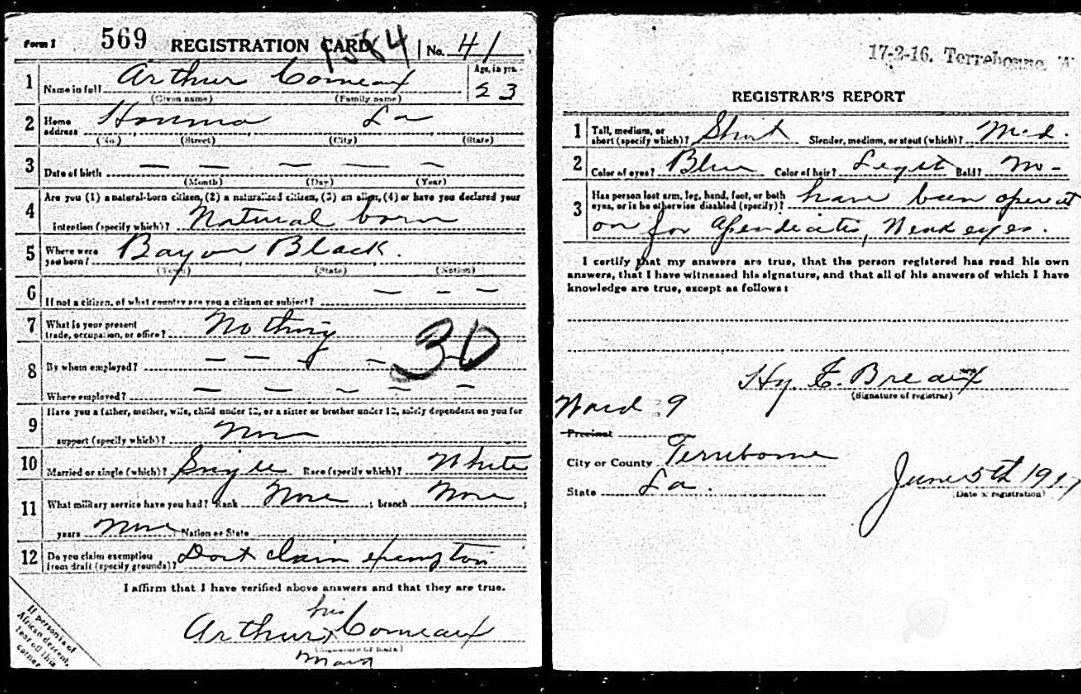 Form 1 569 REGISTRATION CARD 1384 No. 41
1 Name in full Arthur Comeaux Age, in yrs. 23
(Given name) (Family name)
2 Home address Houma La
(No.) (Street) (City) (State)
3 Date of birth — — — — —
(Month) (Day) (Year)
4 Are you (1) a natural-born citizen, (2) a naturalized citizen, (3) an alien, (4) or have you declared your
intention (specify which)? Natural born
5 Where were you born? Bayou Black.
(Town) (State) (Nation)
6 If not a citizen, of what country are you a citizen or subject? — — —
7 What is your present trade, occupation, or office? Nothing
30
8 By whom employed? — — — —
Where employed? — — — — —
9 Have you a father, mother, wife, child under 12, or a sister or brother under 12, solely dependent on you for
support (specify which)? None
10 Married or single (which)? Single Race (specify which)? White
11 What military service have you had? Rank None ; branch None ;
years None Nation or State
12 Do you claim exemption from draft (specify grounds)? Dont claim exemption
I affirm that I have verified above answers and that they are true.
his
Arthur x Comeaux
mark
If person is of African descent, tear off this corner
17-2-16. Terrebonne
REGISTRAR'S REPORT
1 Tall, medium, or short (specify which)? Short Slender, medium, or stout (which)? Med.
2 Color of eyes? Blue Color of hair? Light Bald? No -
3 Has person lost arm, leg, hand, foot, or both eyes, or is he otherwise disabled (specify)? have been operat
on for Apendicites, Weak eyes.
I certify that my answers are true, that the person registered has read his own
answers, that I have witnessed his signature, and that all of his answers of which I have
knowledge are true, except as follows:
Hy. E. Breaux
(Signature of registrar)
Ward 9
Precinct
City or County Terrebonne
State La.
June 5th 1917
(Date of registration)